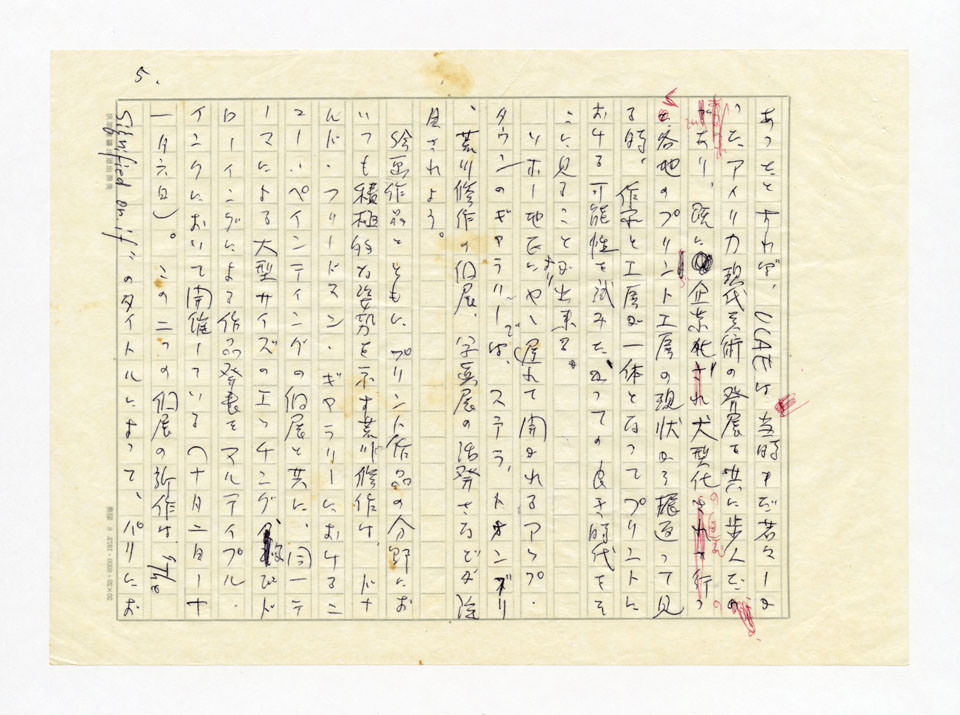 5.
あったとすれば、ULAEは当時まだ若々しか
ったアメリカ現代美術の発展と共に歩んだの
であり、既に企業化され大型化
各地のプリント工房の現状から振返って見
る時、作家と工房が一体となってプリントに
おける可能性を試みたかつての良き時代をそ
こに見ることが出来る。
ソホー地区にやゝ遅れて開かれるアップ・
タウンのギャラリーでは、ステラ、トオンブリ
、荒川修作の個展、写真展の活発さなどが注
目されよう。
絵画作品とともに、プリント作品の分野にお
いても積極的な姿勢を示す荒川修作は、ドナ
ルド・フリードマン・ギャラリーにおけるニ
ュー・ペインティングの個展と共に、同一テ
ーマによる大型サイズのエッチング、及びド
ローイングによる作品発表をマルティプル・
インクにおいて開催している（十月二日ー十
一月六日）。この二つの個展の新作は“The
Signified or if”のタイトルによって、パリにお